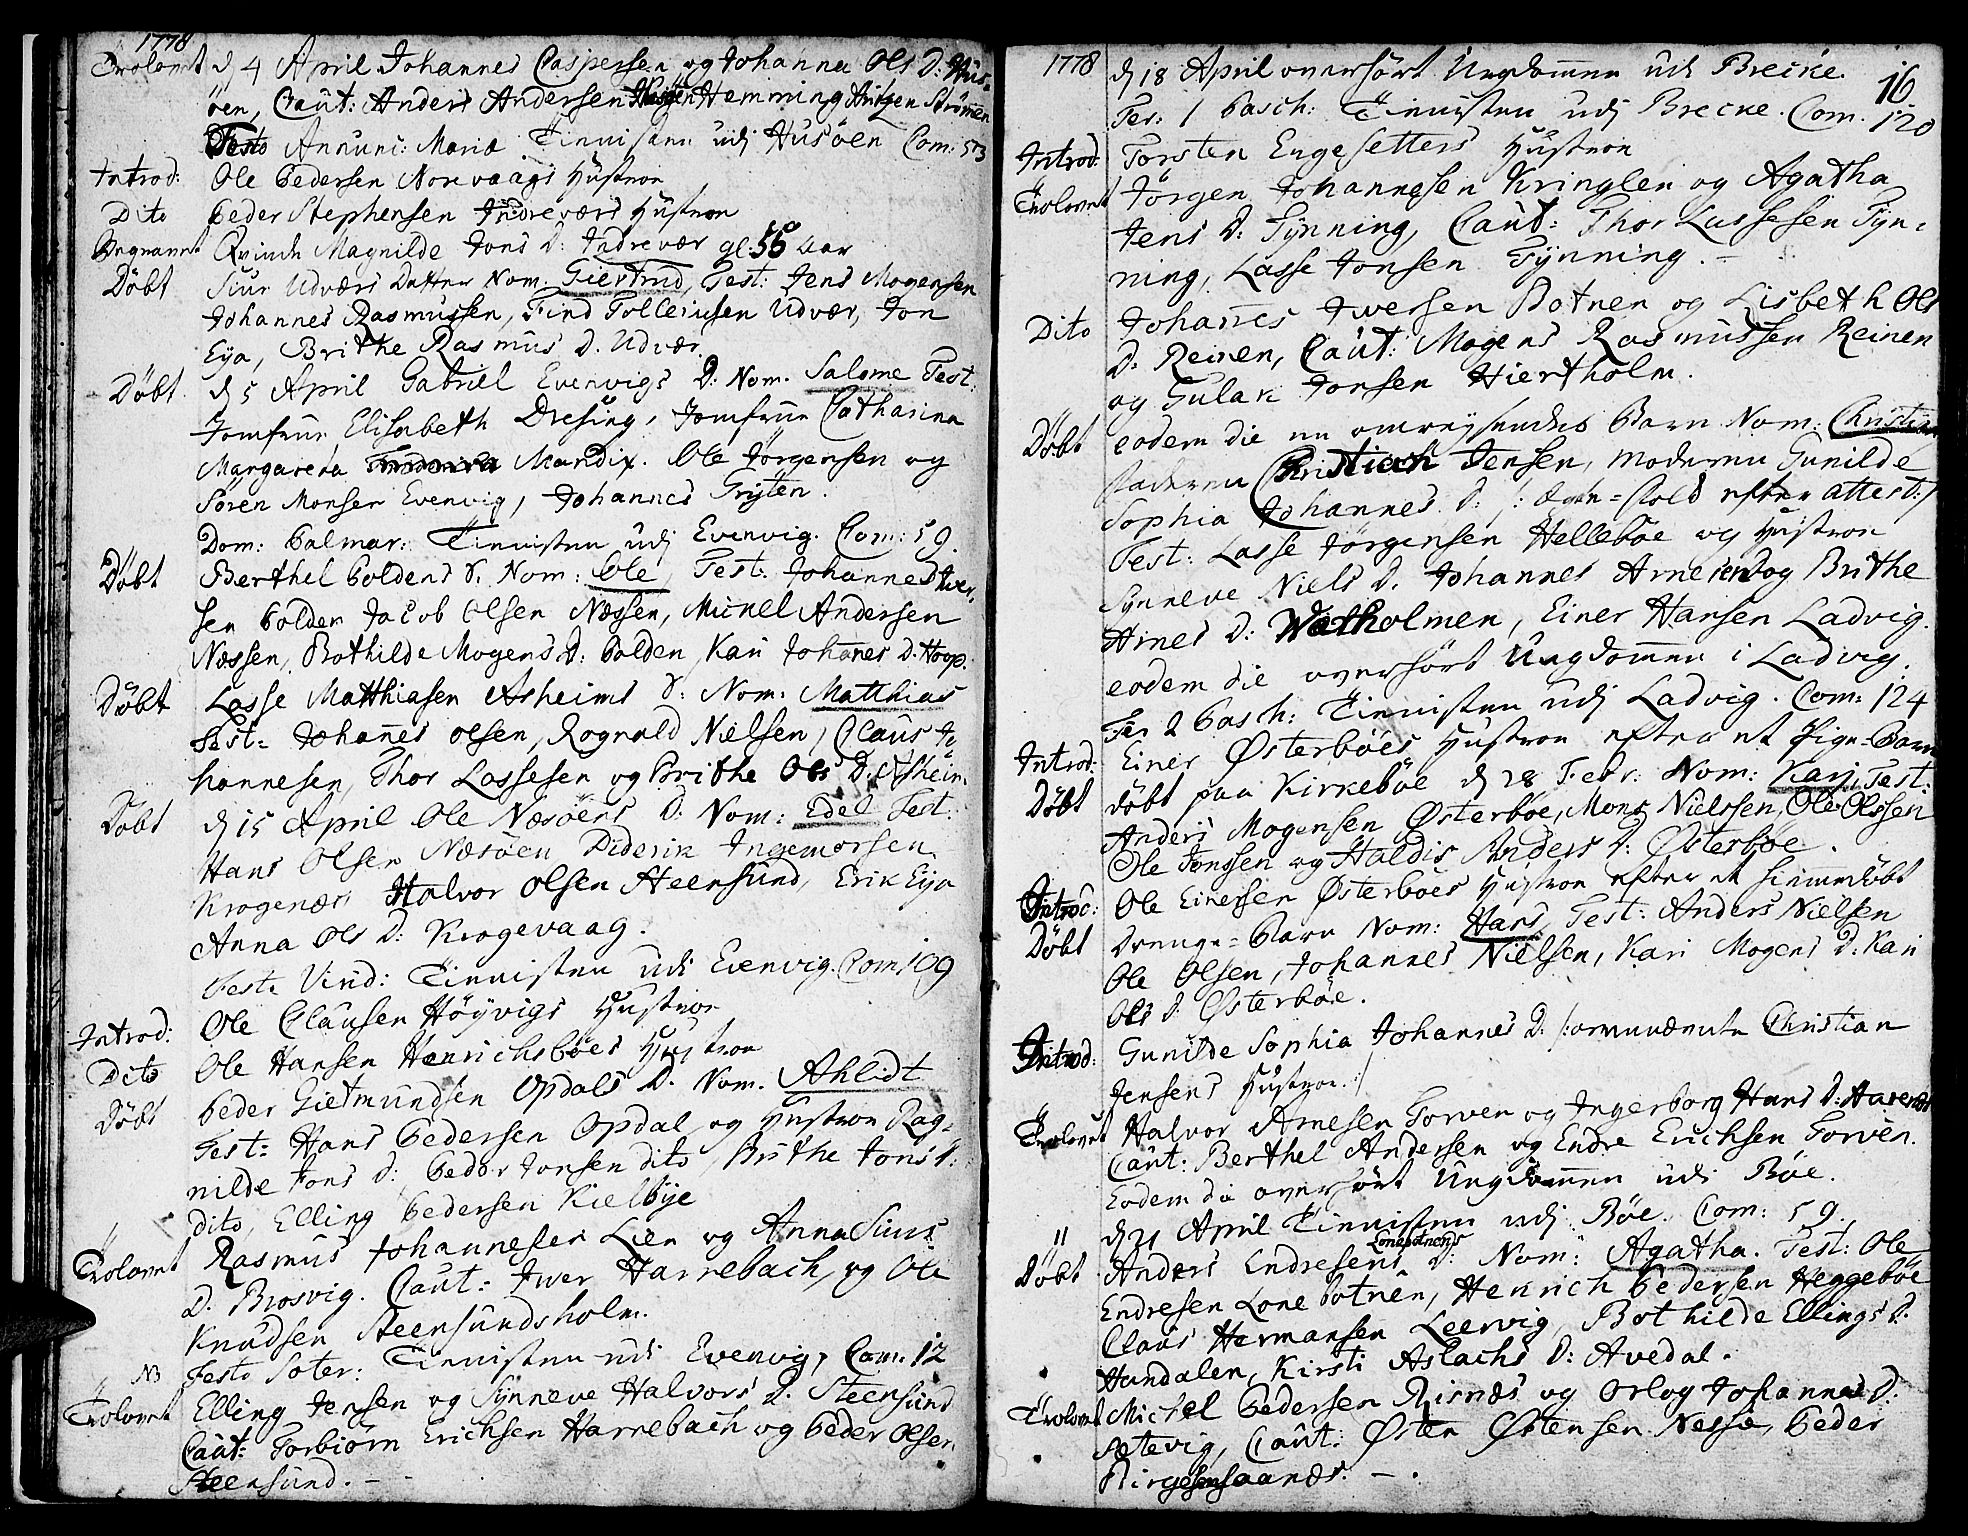 1778
Trolovet d 4 April Johannes Caspersen og Johanna Ols D: Hus-
öen, Caut: Anders Andersen Hemming Strömen
Festo Annunc: Mariæ Tienisten udi Husöen Com: 53
Introd: Ole Pedersen Norevaags Hustroe
Dito Peder Stephensen Indreværs Hustroe
Begravet Qvinde Magnilde Jons D: Indrevær gl. 56 Aar
Döbt Siur Udværs Datter Nom: Giertrud, Test: Jens Mogensen
Johannes Rasmussen, Find Tolleivsen Udvær, Jon
Eya, Brithe Rasmus D. Udvær.
Döbt d 5 April Gabriel Evenvigs D: Nom. Salome Test.
Jomfrue Elisabeth Dresing, Jomfrue Catharina
Margareta Mandix. Ole Jörgensen og
Sören Monsen Evenvig, Johannes Gryten.
Dom: Palmar: Tienisten udi Evenvig. Com: 59.
Döbt Berthel Poldens S. Nom: Ole, Test: Johannes Iver-
sen Polden Jacob Olsen Næssen, Michel Andersen
Næssen, Bothilde Mogens D: Polden, Kari Johanes D. Hoop.
Döbt Lasse Matthiasen Asheims S: Nom: Matthias
Test: Johanes Olsen, Rognald Nielsen, Claus Jo
hannesen, Thor Lassesen og Brithe Ols D. Asheim.
Döbt d 15 April Ole Næsöens D: Nom: Edel Test:
Hans Olsen Næsöen Diderik Ingemorsen
Krogenæs Halvor Olsen Steensund, Erik Eya
Anna Ols D: Krogevaag.
Festi Vind: Tienisten udi Evenvig. Com: 109
Introd: Ole Clausen Höyvigs Hustroe
Dito Ole Hansen Henrichsböes Hustroe
Döbt Peder Gietmundsen Opdals D. Nom. Ahlidt
Test: Hans Pedersen Opdal og Hustroe Rag-
nilde Jons D: Peder Jonsen dito Brithe Jons D:
dito, Elling Pedersen Kielbye
Trolovet Rasmus Johannesen Lien og Anna Siurs
D. Brosvig. Caut: Iver Harrebach, og Ole
Knudsen Steensundsholm.
NB Festo Soter: Tienisten udi Evenvig, Com: 12
Trolovet Elling Jensen og Synneve Halvors D. Steensund
Caut: Torbiörn Erichsen Harrebach og Peder Olsen
Steensund. -
1778 16
d 18 April overhört Ungdommen udi Breike.
Fer: 1 Pasch: Tienisten udi Brecke. Com. 120
Introd: Torsten Engesetters Hustroe
Trolovet Jörgen Johannesen Kringlen og Agatha
Jens D: Tynning, Caut: Thor Lassesen Tyn-
ning, Lasse Jonsen Tynning. -
Dito Johanes Iversen Botnen og Lisbeth Ols
D. Reinen, Caut: Mogens Rasmussen Reinen
og Gulak Jonsen Hiertholm.
Döbt eodem die en omreysendes Barn Nom: Christian
Faderen Christian Jensen, Moderen Gunilde
Sophia Johannes D: /: Ægte-Fold efter attest:/
Test: Lasse Jörgensen Helleböe og Hustroe
Synneve Niels D. Johannes Arnesen og Brithe
Arnes D: Watholmen, Einer Hansen Ladvig.
eodem die overhört Ungdommen i Ladvig.
Fer 2 Pasch: Tienisten udi Ladvig. Com: 124
Introd: Einer Østerböes Hustroe efter et Pige-Barn
Döbt döbt paa Kirkeböe d 28 Febr: Nom: Kari, Test:
Anders Mogensen Østerböe, Mons Nielssen, Ole Olssen
Ole Jonssen og Haldis Anders D: Østerböe.
Introd: Ole Einersen Østerböes Hustroe efter et hiemmedöbt
Döbt Drenge-Barn Nom: Hans, Test: Anders Nielsen
Ole Olsen, Johannes Nielsen, Kari Mogens D: Kari
Ols D: Østerböe.
Introd: Gunilde Sophia Johannes D: /: Christian
Jensens Hustroe:/
Trolovet Halvor Arnesen Torven og Ingerborg Hans D:
Caut: Berthel Andersen og Endre Erichsen Torven.
Eodem die overhört Ungdommen udi Böe.
d 21 April Tienisten udi Böe. Com: 59.
Döbt Anders Endresens Lonebotnens D: Nom: Agatha. Test: Ole
Endresen Lonebotnen, Henrich Pedersen Heggeböe
Claus Hermansen Leervig, Bothilde Ellings D:
Hundalen, Kirsti Aslachs D: Avedal.
Trolovet Michel Pedersen Risnæs og Orlog Johannes D:
Sætevig, Caut: Østen Østensen Nesse, Peder
- .